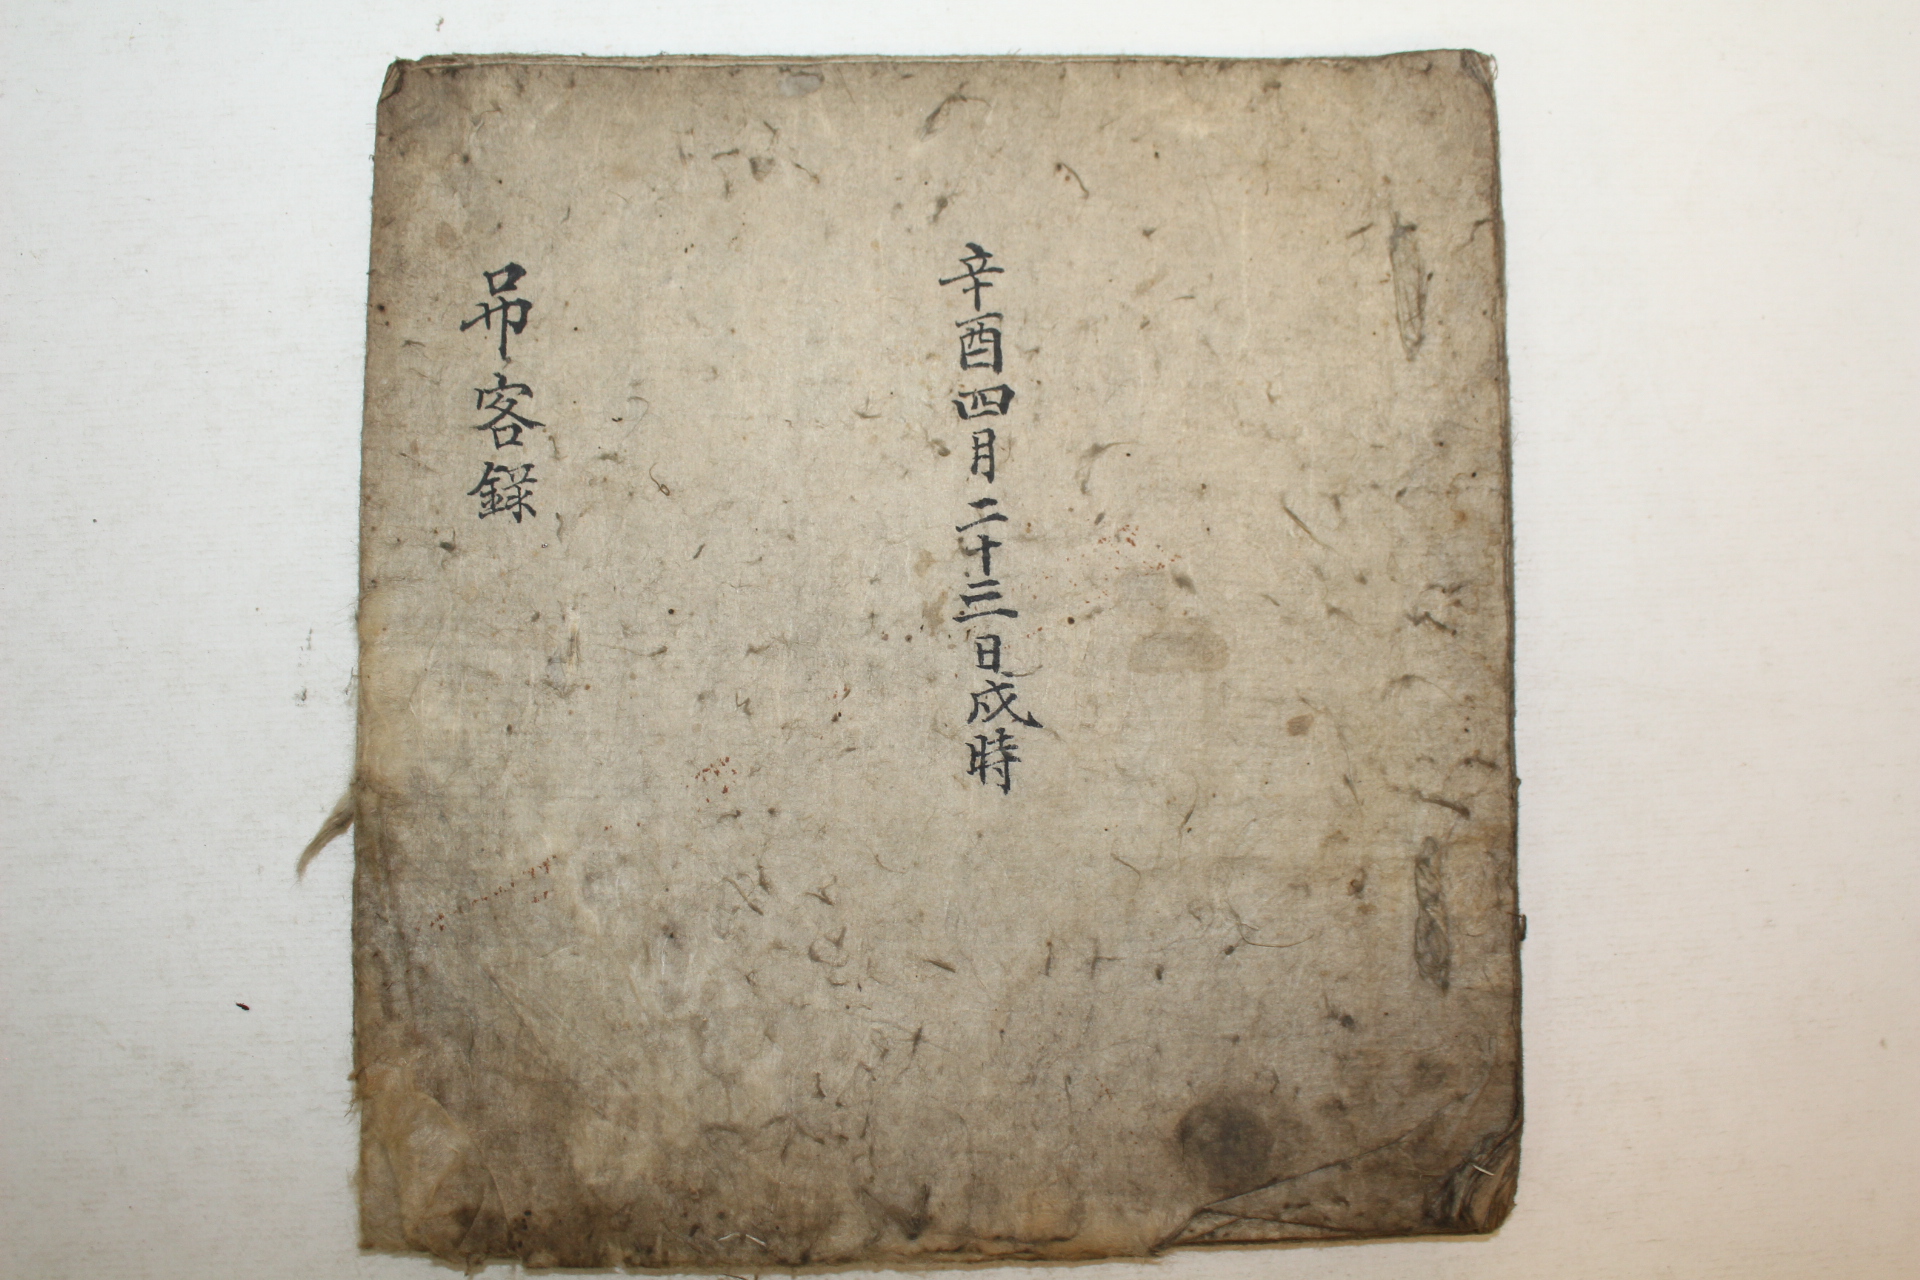 辛酉四月二十三日戌時
吊客錄